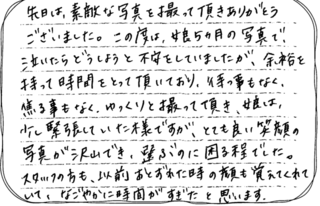 先日は、素敵な写真を撮って頂きありがとう
ございました。この度は、娘5ヵ月の写真で、
泣いたらどうしようと不安をしていましたが、余裕を
持って時間をとって頂いており、待つ事もなく、
焦る事もなく、ゆっくりと撮って頂き、娘は、
少し緊張していた様ですが、とても良い笑顔の
写真が沢山でき、選ぶのに困る程でした。
スタッフの方も、以前おとずれた時の顔も覚えてくれて
いて、なごやかに時間がすぎたと思います。